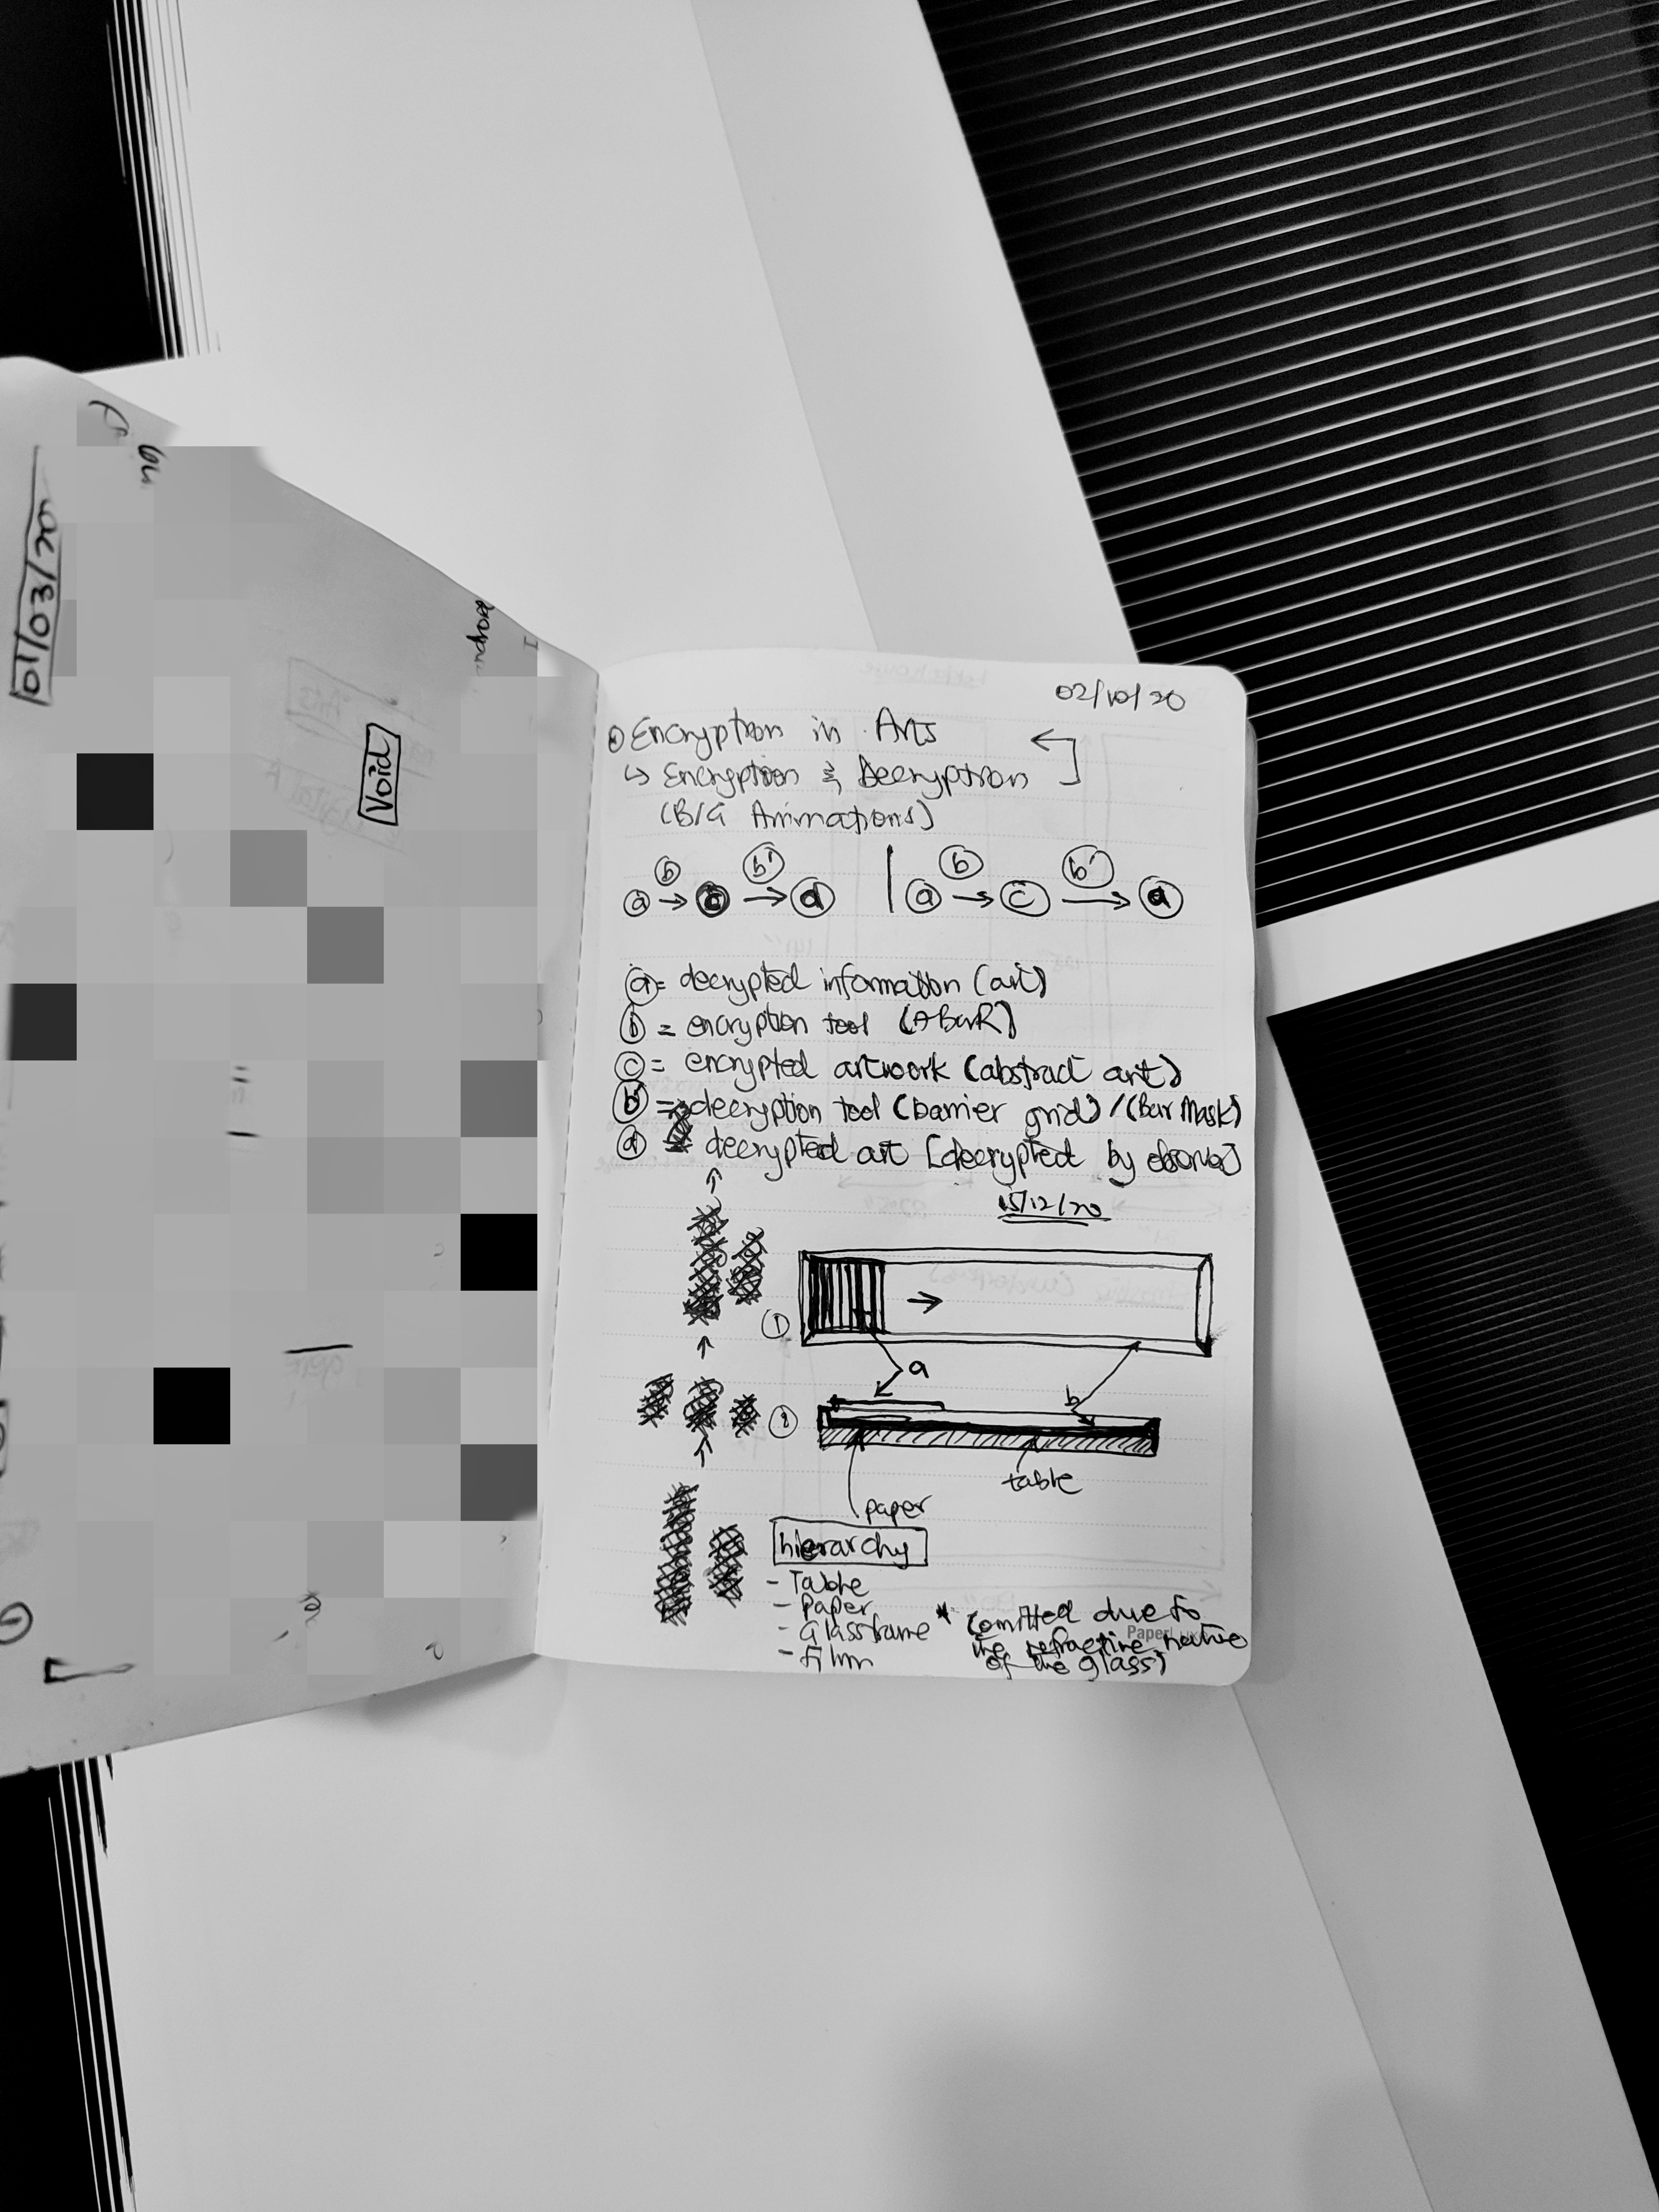 01/03/20
Void
02/10/20
Encryption in Arts
↳ Encryption & Decryption
(B/G Animations)
b b' b b'
a → c → d | a → c → a
a = decrypted information (art)
b = encryption tool (ABarR)
c = encrypted artwork (abstract art)
b' = decryption tool (barrier grid) / (Bar Mask)
d decrypted art [decrypted by observer]
15/12/20
1
a
2
b
table
paper
hierarchy
- Table
- Paper
- Glassframe * (omitted due to
the refractive nature
of the glass)
- film
Paper